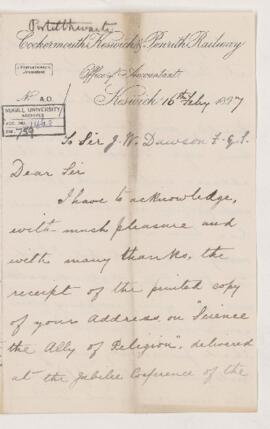 Postlethwaite
Cockermouth, Keswick & Penrith Railway
Office of Accountant
J. POSTLETHWAITE
ACCOUNTANT
No A.D.
Keswick 16 Feby 1897
McGILL UNIVERSITY
ARCHIVES
ACC. NO.
REF. 759
To Sir J. W. Dawson F.G.S.
Dear Sir
I have to acknowledge,
with much pleasure and
with many thanks, the
receipt of the printed copy
of your Address, on "Science
the Ally of Religion", delivered
at the Jubilee Conference of the